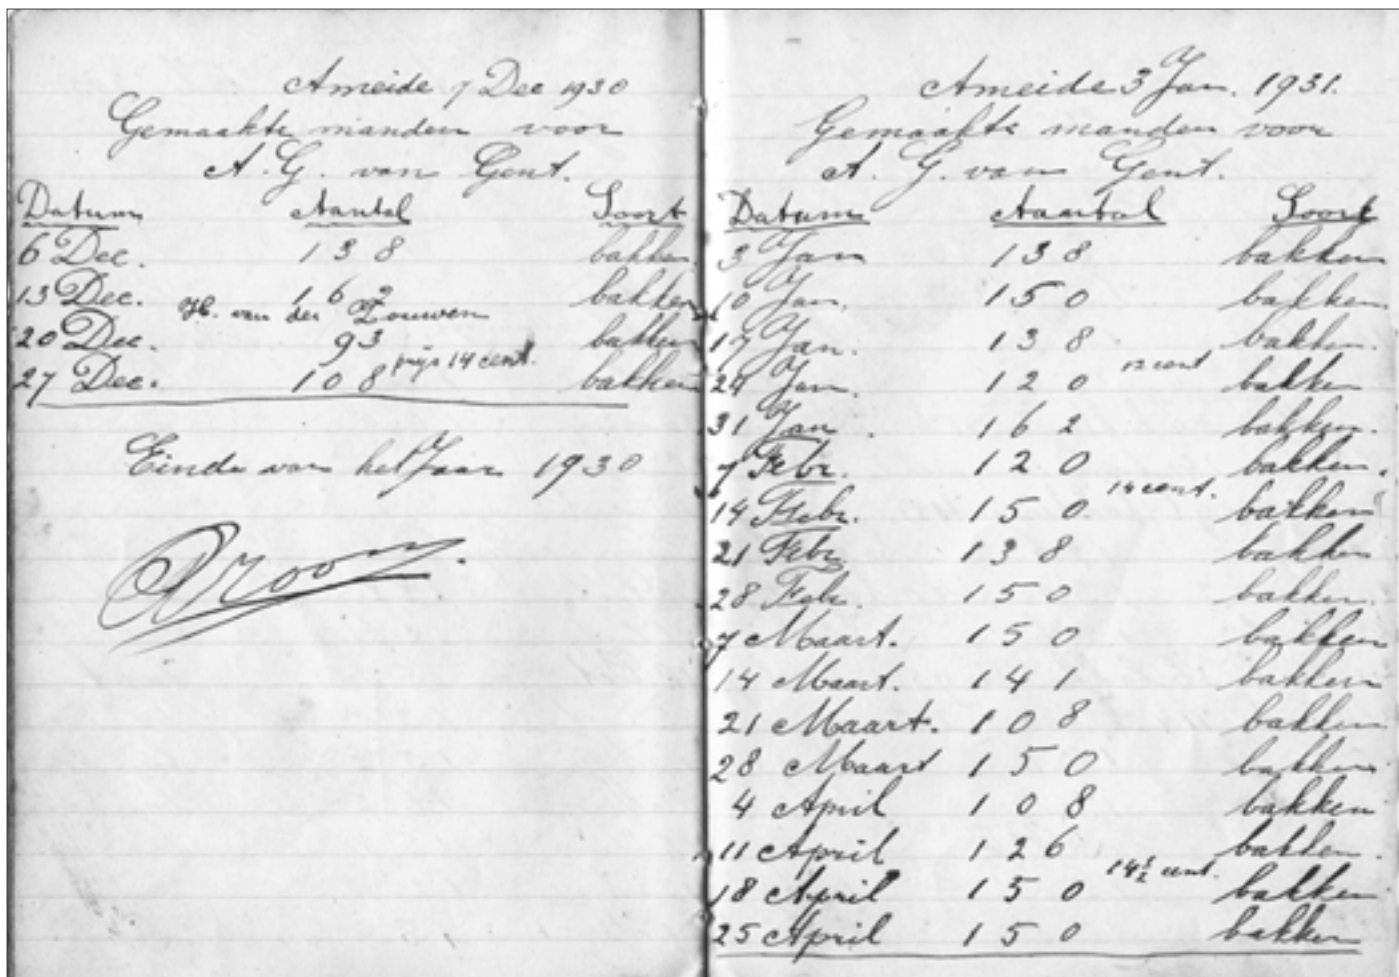 Ameide 7 Dec 1930
Gemaakte manden voor
A. G. van Gent.
Datum Aantal Soort
6 Dec. 138 bakken
13 Dec. 162 bakken
H. van der Zouwen
20 Dec. 93 bakken
prijs 14 cent.
27 Dec. 108 bakken
Einde van het Jaar 1930
Ameide 3 Jan. 1931.
Gemaakte manden voor
A. G. van Gent.
Datum Aantal Soort
3 Jan 138 bakken
10 Jan. 150 bakken.
17 Jan. 138 bakken.
12 cent
24 Jan. 120 bakken
31 Jan. 162 bakken.
7 Febr. 120 bakken.
14 cent.
14 Febr. 150 bakken
21 Febr 138 bakken
28 Febr. 150 bakken.
7 Maart. 150 bakken
14 Maart. 141 bakken
21 Maart. 108 bakken
28 Maart 150 bakken
4 April 108 bakken
11 April 126 bakken.
14½ cent.
18 April 150 bakken
25 April 150 bakken